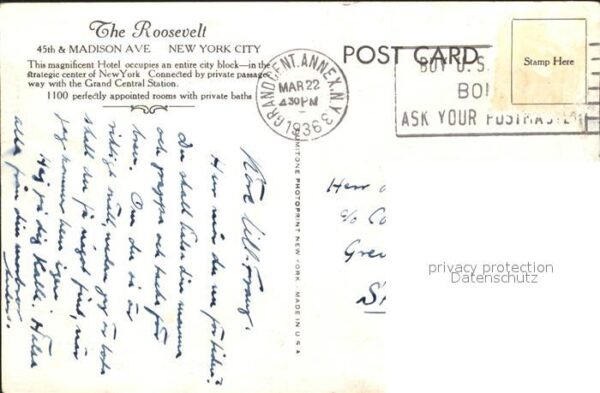 The Roosevelt
45th & MADISON AVE NEW YORK CITY
This magnificent Hotel occupies an entire city block—in the
strategic center of New York Connected by private passage
way with the Grand Central Station.
1100 perfectly appointed rooms with private baths
POST CARD
GRAND CENT. ANNEX. N.Y. 3
MAR 22
4 30 PM
1936
BUY U.S.
BO
ASK YOUR POSTMASTER
Stamp Here
LUMITONE PHOTOPRINT NEW YORK. MADE IN U.S.A
Käre lill-Franz.
Hur mår du nu för tiden?
Du skall hälsa din mamma
och pappa och tacka för
breven. Om du är
riktigt snäll, medan jag är borta
skall du få något fint, när
jag kommer hem igen.
Hej på dig Kalle! Hälsa
alla från din
Herr
c/o Co
Gre
S
privacy protection
Datenschutz